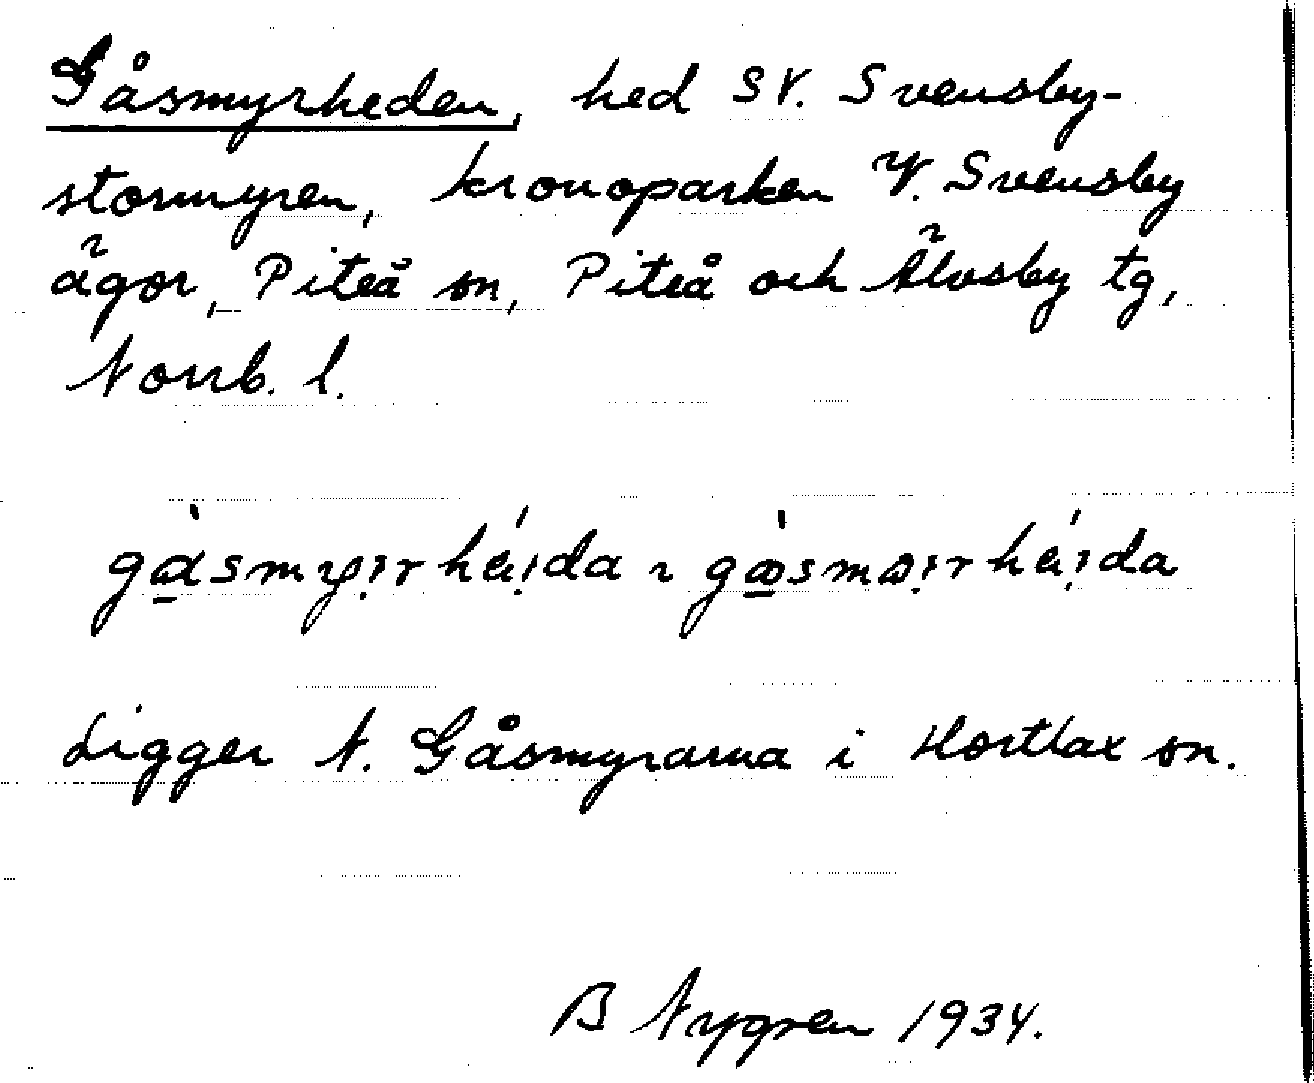 Gåsmyrheden, hed SV. Svensby-
stormyren, kronoparken V. Svensby
ägor, Piteå sn, Piteå och Älvsby tg,
Norrb. l.
Ligger N. Gåsmyrarna i Hortlax sn.
B Nygren 1934.